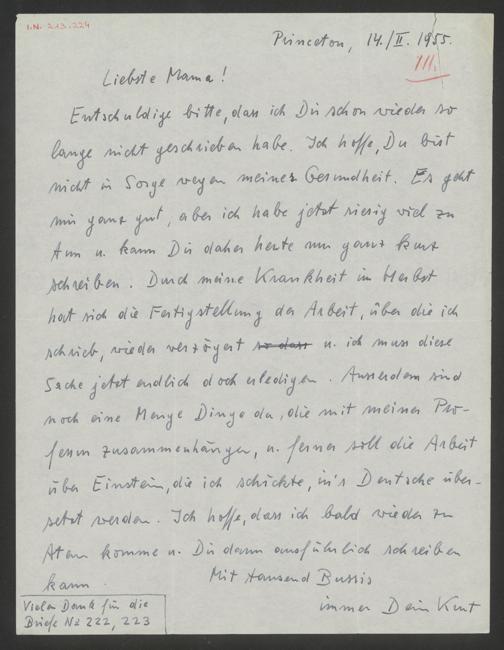 I.N. 213.224
Princeton, 14./II. 1955.
III.
Liebste Mama!
Entschuldige bitte, dass ich Dir schon wieder so
lange nicht geschrieben habe. Ich hoffe, Du bist
nicht in Sorge wegen meiner Gesundheit. Es geht
mir ganz gut, aber ich habe jetzt riesig viel zu
tun u. kann Dir daher heute nur ganz kurz
schreiben. Durch meine Krankheit im Herbst
hat sich die Fertigstellung der Arbeit, über die ich
schrieb, wieder verzögert so dass u. ich muss diese
Sache jetzt endlich doch erledigen. Ausserdem sind
noch eine Menge Dinge da, die mit meiner Pro-
fessur zusammenhängen, u. ferner soll die Arbeit
über Einstein, die ich schickte, in's Deutsche über-
setzt werden. Ich hoffe, dass ich bald wieder zu
Atem komme u. Dir dann ausführlich schreiben
kann.
Mit tausend Bussis
immer Dein Kurt
Vielen Dank für die
Briefe Nr 222, 223